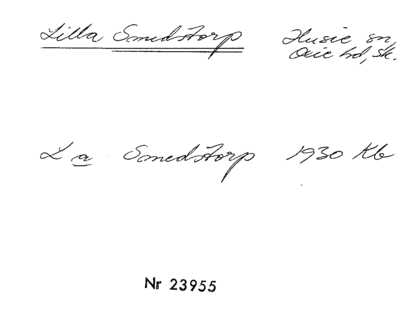 Lilla Smedstorp Husie sn,
Oxie hd, Sk.
L a Smedstorp 1930 Kb
Nr 23955